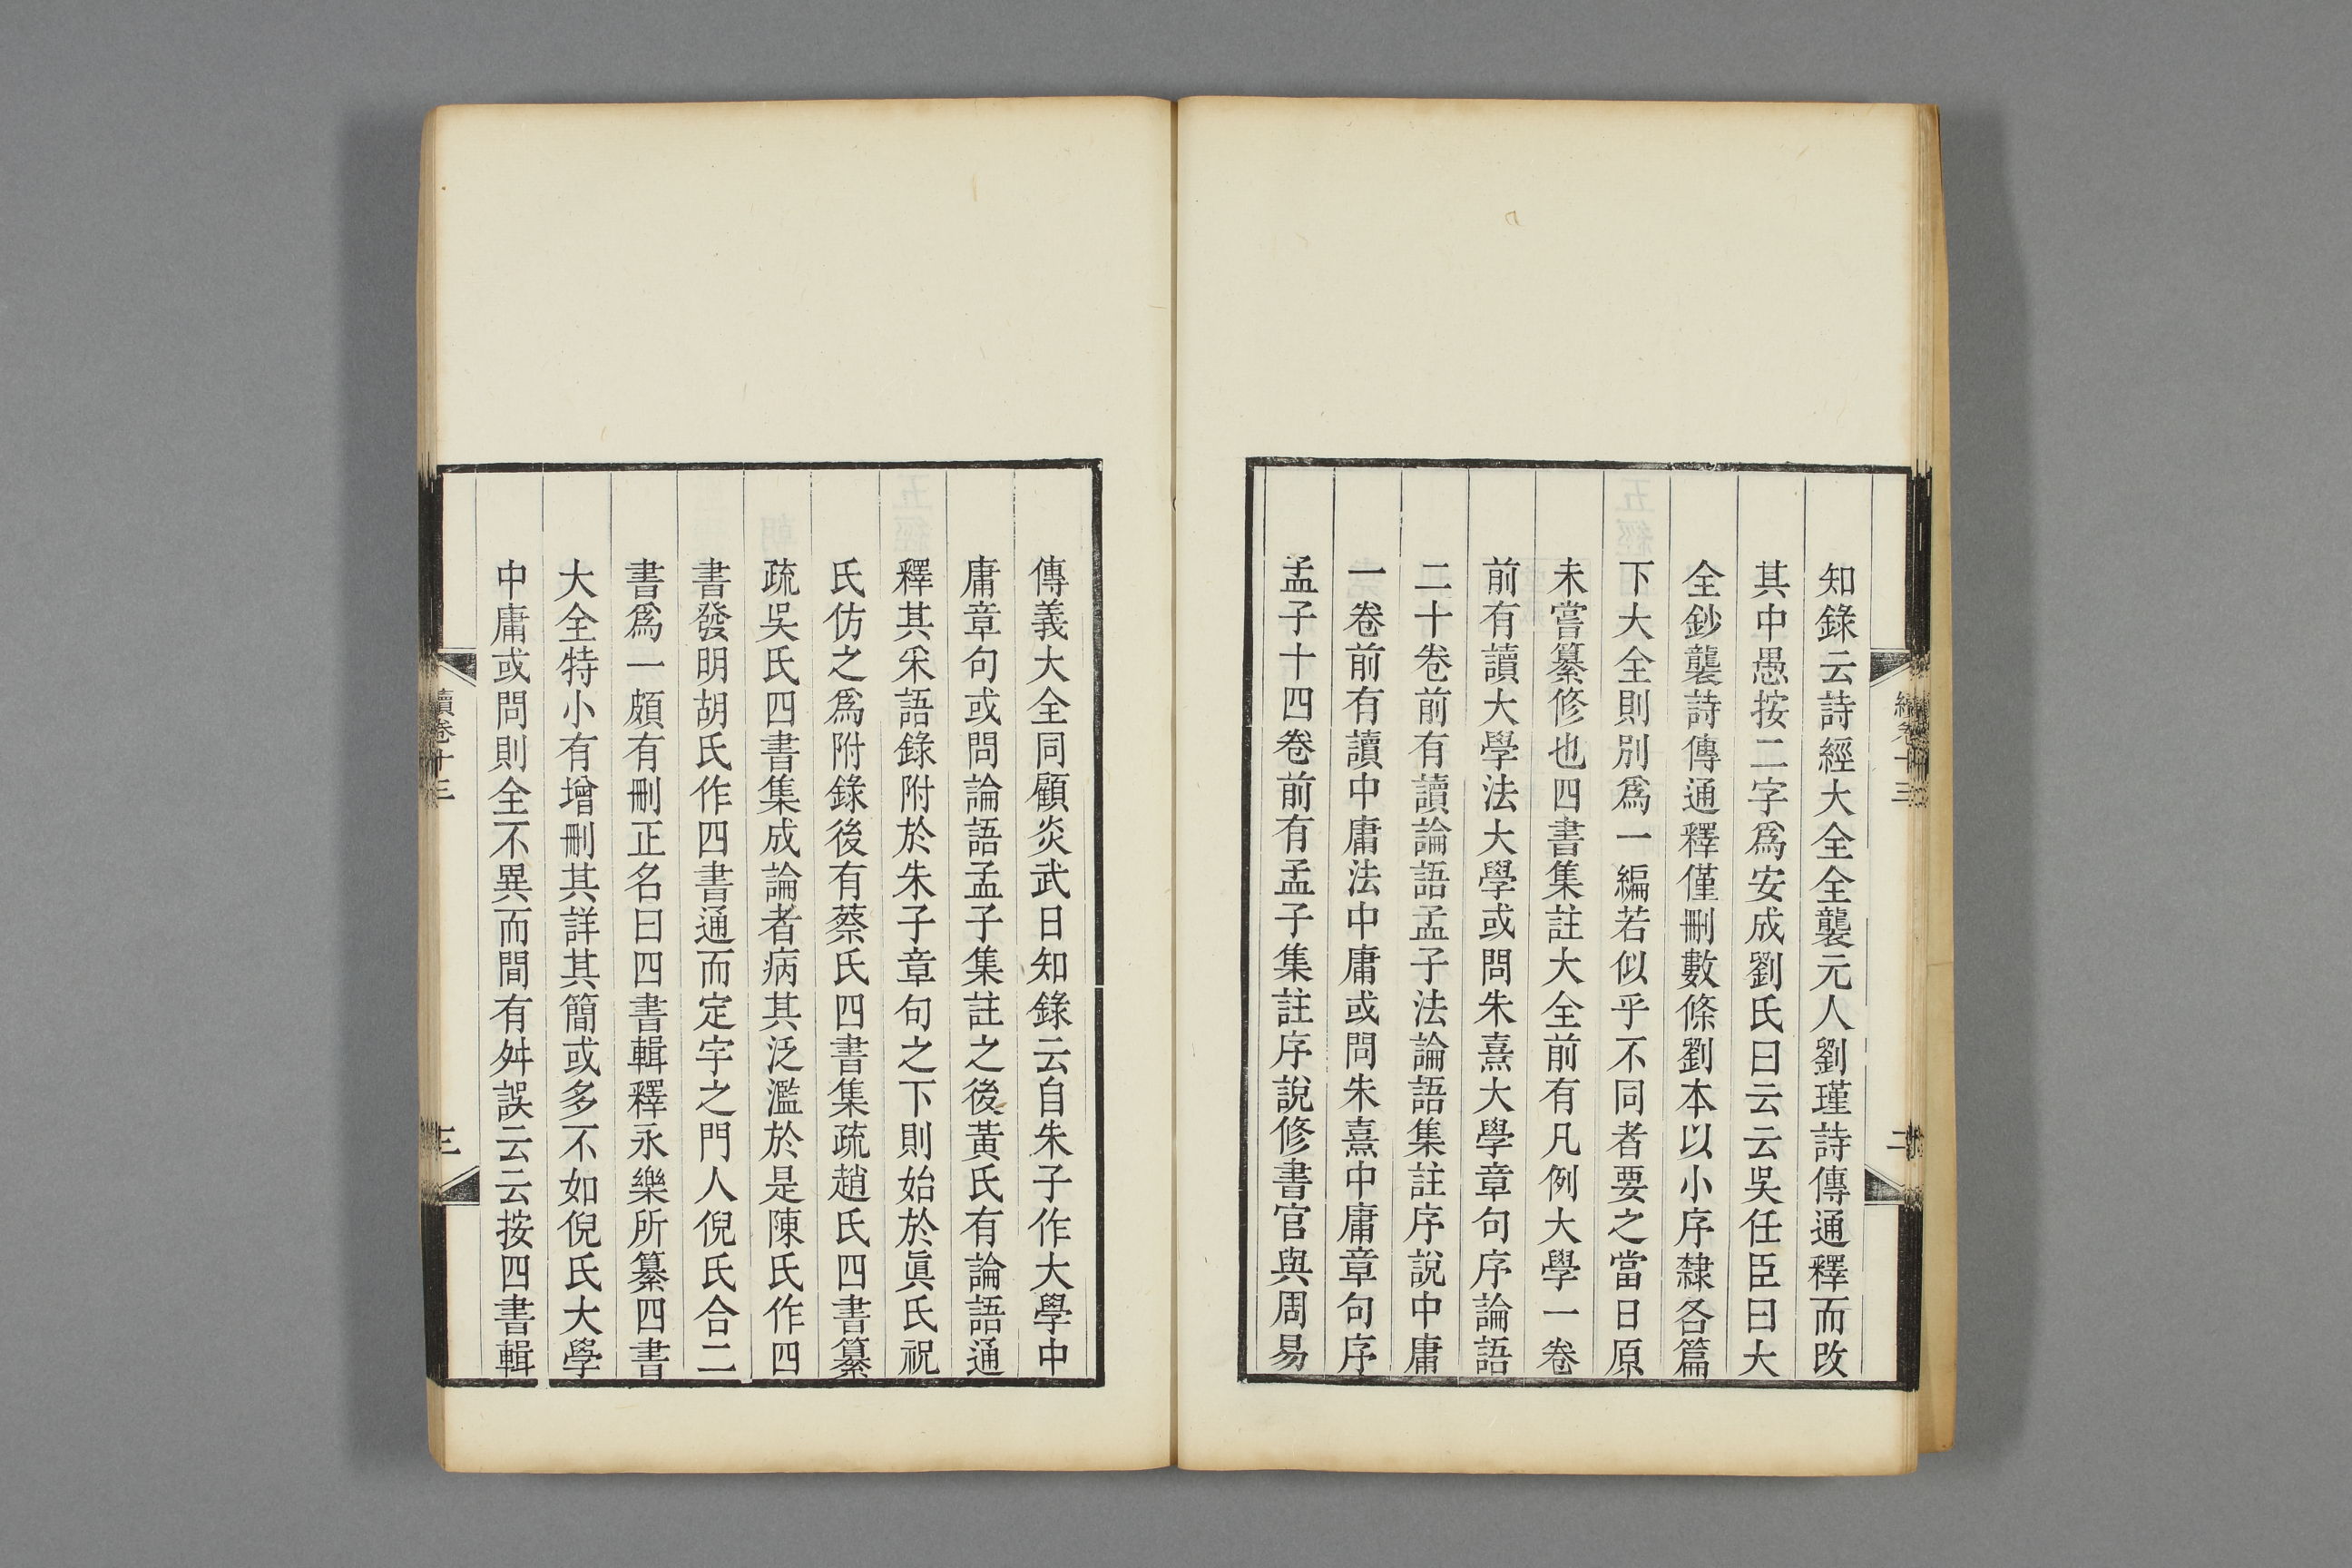 知錄云詩經大全全襲元人劉瑾詩傳通釋而改
其中愚按二字爲安成劉氏曰云云吳任臣曰大
全鈔襲詩傳通釋僅刪數條劉本以小序隸各篇
下大全則別爲一編若似乎不同者要之當日原
未嘗纂修也四書集註大全前有凡例大學一卷
前有讀大學法大學或問朱熹大學章句序論語
二十卷前有讀論語孟子法論語集註序說中庸
一卷前有讀中庸法中庸或問朱熹中庸章句序
孟子十四卷前有孟子集註序說修書官與周易
傳義大全同顧炎武日知錄云自朱子作大學中
庸章句或問論語孟子集註之後黃氏有論語通
釋其采語錄附於朱子章句之下則始於眞氏祝
氏仿之爲附錄後有蔡氏四書集疏趙氏四書纂
疏吳氏四書集成論者病其泛濫於是陳氏作四
書發明胡氏作四書通而定宇之門人倪氏合二
書爲一頗有刪正名曰四書輯釋永樂所纂四書
大全特小有增刪其詳其簡或多不如倪氏大學
中庸或問則全不異而間有舛誤云云按四書輯
續卷十三
三